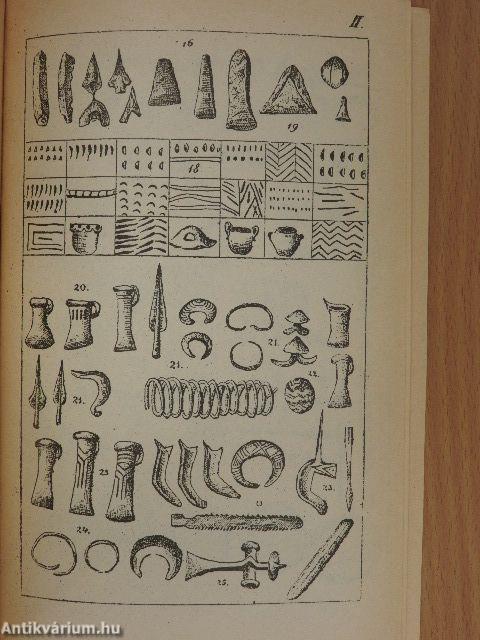 II.
16
19
18
20.
21.
21.
22.
21.
23
23.
24.
25.
Antikvárium.hu